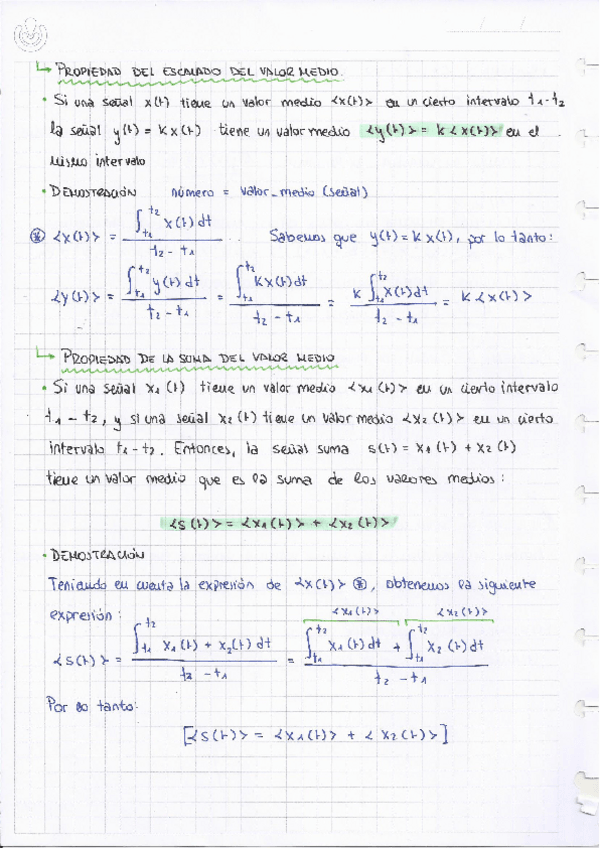 ↳ PROPIEDAD DEL ESCALADO DEL VALOR MEDIO.
• Si una señal x(t) tiene un valor medio <x(t)> en un cierto intervalo t₁-t₂
la señal y(t) = Kx(t) tiene un valor medio <y(t)> = K<x(t)> en el
mismo intervalo
• DEMOSTRACIÓN número = valor_medio (señal)
⊛ <x(t)> = ∫_{t₁}^{t₂} x(t) dt / (t₂ - t₁) Sabemos que y(t) = K x(t), por lo tanto:
<y(t)> = ∫_{t₁}^{t₂} y(t) dt / (t₂ - t₁) = ∫_{t₁}^{t₂} Kx(t) dt / (t₂ - t₁) = K ∫_{t₁}^{t₂} x(t) dt / (t₂ - t₁) = K <x(t)>
↳ PROPIEDAD DE LA SUMA DEL VALOR MEDIO
• Si una señal x₁(t) tiene un valor medio <x₁(t)> en un cierto intervalo
t₁ - t₂, y si una señal x₂(t) tiene un valor medio <x₂(t)> en un cierto
intervalo t₁ - t₂. Entonces, la señal suma s(t) = x₁(t) + x₂(t)
tiene un valor medio que es la suma de los valores medios:
<s(t)> = <x₁(t)> + <x₂(t)>
• DEMOSTRACIÓN
Teniendo en cuenta la expresión de <x(t)> ⊛, obtenemos la siguiente
expresión: <x₁(t)> <x₂(t)>
<s(t)> = ∫_{t₁}^{t₂} x₁(t) + x₂(t) dt / (t₂ - t₁) = ∫_{t₁}^{t₂} x₁(t) dt + ∫_{t₁}^{t₂} x₂(t) dt / (t₂ - t₁)
Por lo tanto:
[<s(t)> = <x₁(t)> + <x₂(t)>]